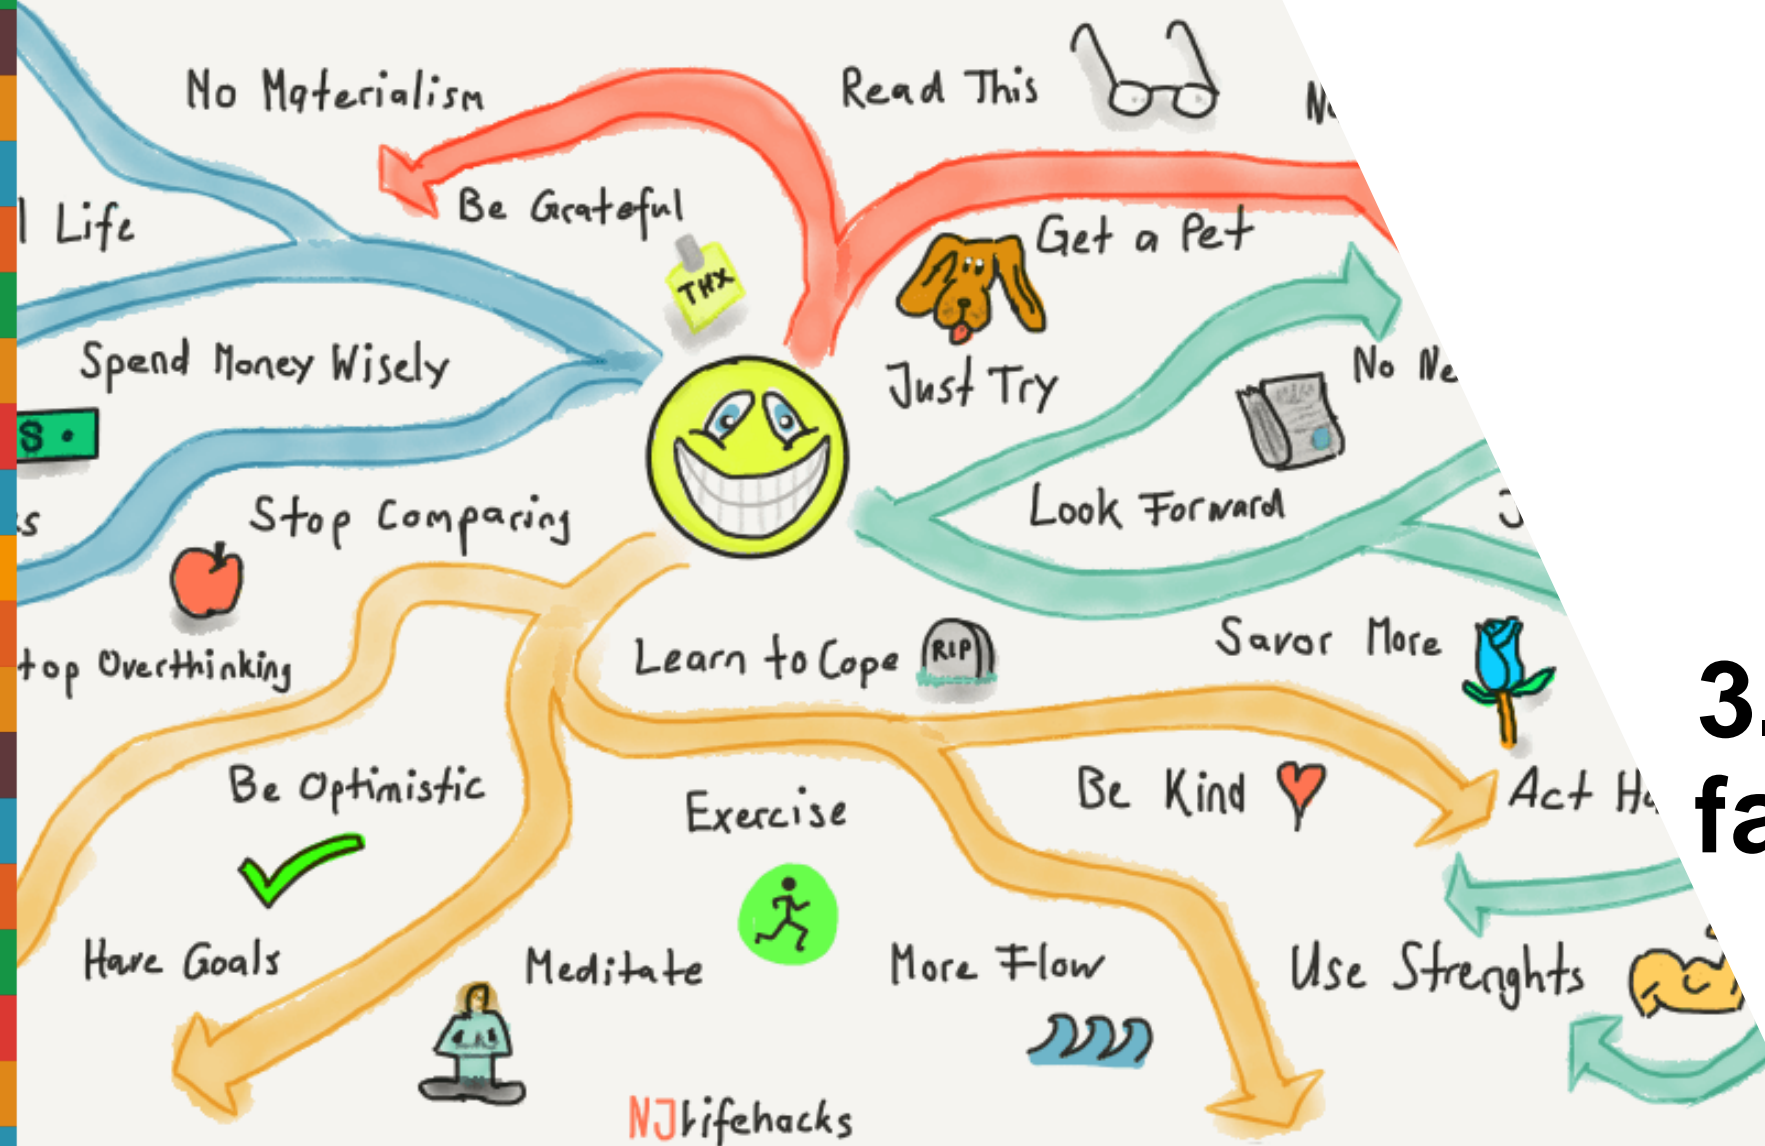 No Materialism
Read This
Be Grateful
Life
Get a Pet
THX
Spend Money Wisely
Just Try
No Ne
$
Stop Comparing
Look Forward
s
top Overthinking
Learn to Cope
RIP
Savor More
3.
Be Optimistic
Exercise
Be Kind
Act Ha
fa
Have Goals
Meditate
More Flow
Use Strenghts
NJlifehacks